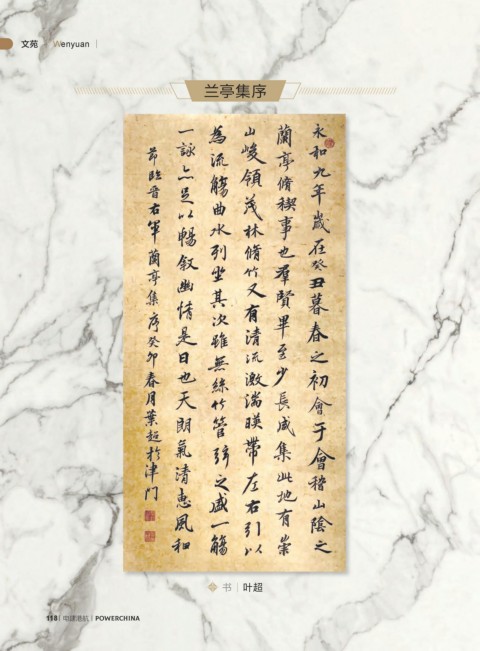 文苑 Wenyuan
兰亭集序
永和九年歲在癸丑暮春之初會于會稽山陰之
蘭亭脩稧事也羣賢畢至少長咸集此地有崇
山峻領茂林脩竹又有清流激湍暎帶左右引以
為流觴曲水列坐其次雖無絲竹管弦之盛一觴
一詠亦足以暢叙幽情是日也天朗氣清惠風和
節臨晉右軍蘭亭集序癸卯春月葉超於津門
书 | 叶超
118 | 电建港航 | POWERCHINA